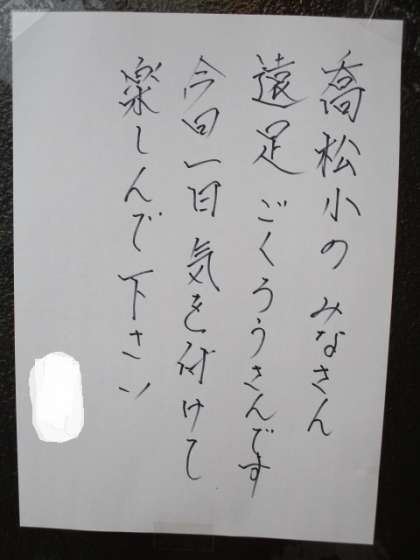 高松小のみなさん
遠足ごくろうさんです
今回一日気を付けて
楽しんで下さい